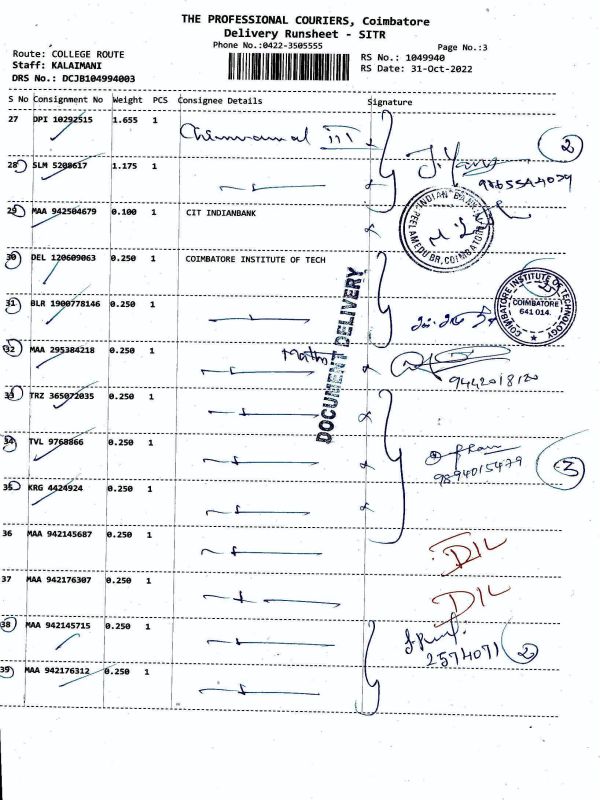 THE PROFESSIONAL COURIERS, Coimbatore
Delivery Runsheet - SITR
Phone No.:0422-3505555
Page No.:3
Route: COLLEGE ROUTE
Staff: KALAIMANI
DRS No.: DCJB104994003
RS No.: 1049940
RS Date: 31-Oct-2022
S No Consignment No Weight PCS Consignee Details Signature
27 DPI 10292515 1.655 1
2
28 SLM 5208617 1.175 1
29 MAA 942504679 0.100 1 CIT INDIANBANK
INDIAN BANK
PEELAMEDU BR, COIMBATORE
30 DEL 120609063 0.250 1 COIMBATORE INSTITUTE OF TECH
31 BLR 1900778146 0.250 1
COIMBATORE INSTITUTE OF TECHNOLOGY
COIMBATORE
641 014.
DOCUMENT DELIVERY
32 MAA 295384218 0.250 1 Maths
9442018120
33 TRZ 365072035 0.250 1
34 TVL 9768866 0.250 1
9894015479
3
35 KRG 4424924 0.250 1
36 MAA 942145687 0.250 1
DIL
37 MAA 942176307 0.250 1
DIL
38 MAA 942145715 0.250 1
2574071
2
39 MAA 942176312 0.250 1